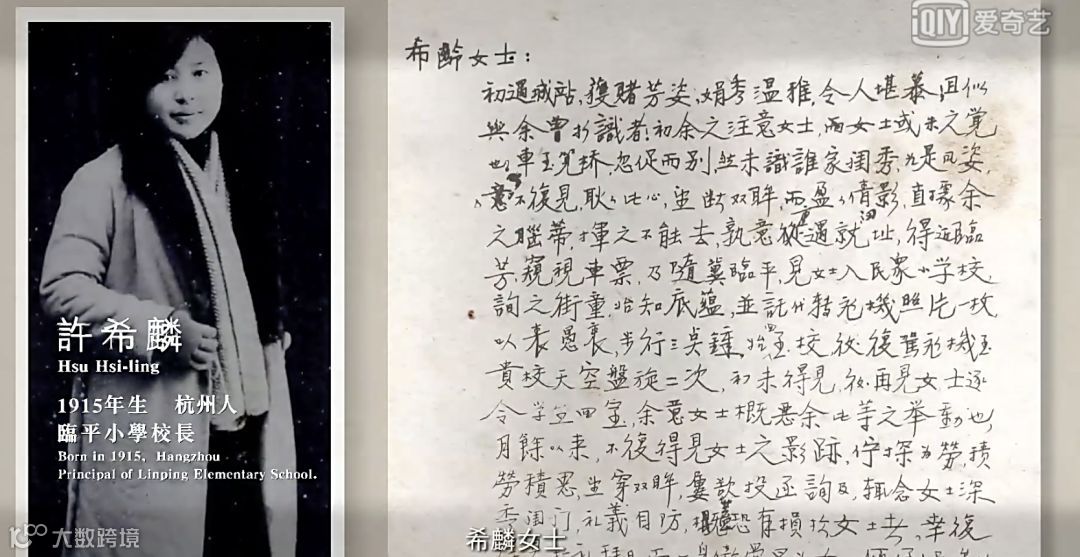 iQIYI 爱奇艺
許希麟
Hsu Hsi-ling
1915年生 杭州人
臨平小學校長
Born in 1915, Hangzhou
Principal of Linping Elementary School.
希齡女士：
初遇城站，獲睹芳姿，娟秀温雅，令人堪慕，且似
與余曾相識者；初余之注意女士，而女士或未之覺
也，車至筧桥，忽促而别，然未識誰家闺秀，如是風姿，
不復見，耿耿此心，望断双眸，而盈盈倩影，直據余
之腦蒂，揮之不能去，孰意後遇就址，得近臨
芳，窺視車票，及隨冀臨平，見女士入民家小学校，
詢之街童，始知底蕴，並託代替飛機照片一枚
以表愚衷，步行三点鐘，始至校，後復駕飛機至
貴校天空盤旋二次，初未得見，後再見女士逐
令学生回室，余意女士概悉余此等之举動也，
月餘以来，不復得見女士之影跡，佇探为勞，積
勞積思，望穿双眸，屢欲投函詢及，輒念女士深
秀闺门，礼義自防，恐有損於女士，幸復
希麟女士
大数跨境